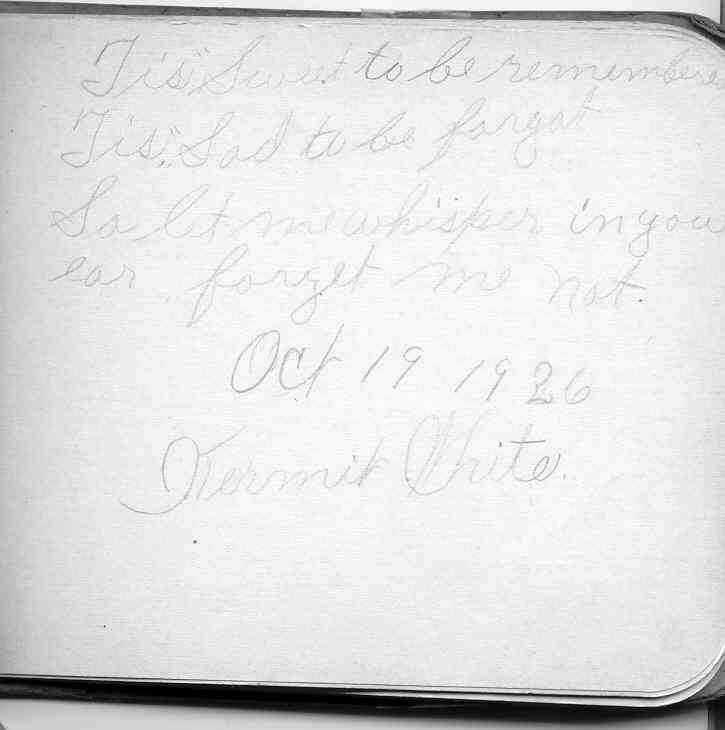 Tis" Sweet to be remembere
Tis" Sad to be forgot
So let me whisper in you
ear forget me not.
Oct 19 1926
Kermit White.